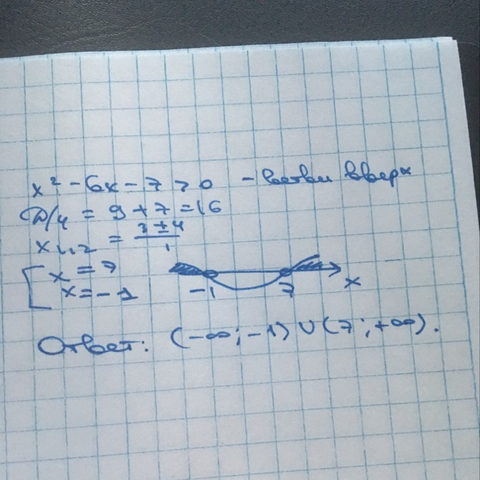 x² - 6x - 7 > 0 - ветви вверх
D/4 = 9 + 7 = 16
x1,2 = (3 ± 4)/1
[ x = 7
x = -1
-1 7 x
Ответ: (-∞; -1) ∪ (7; +∞).